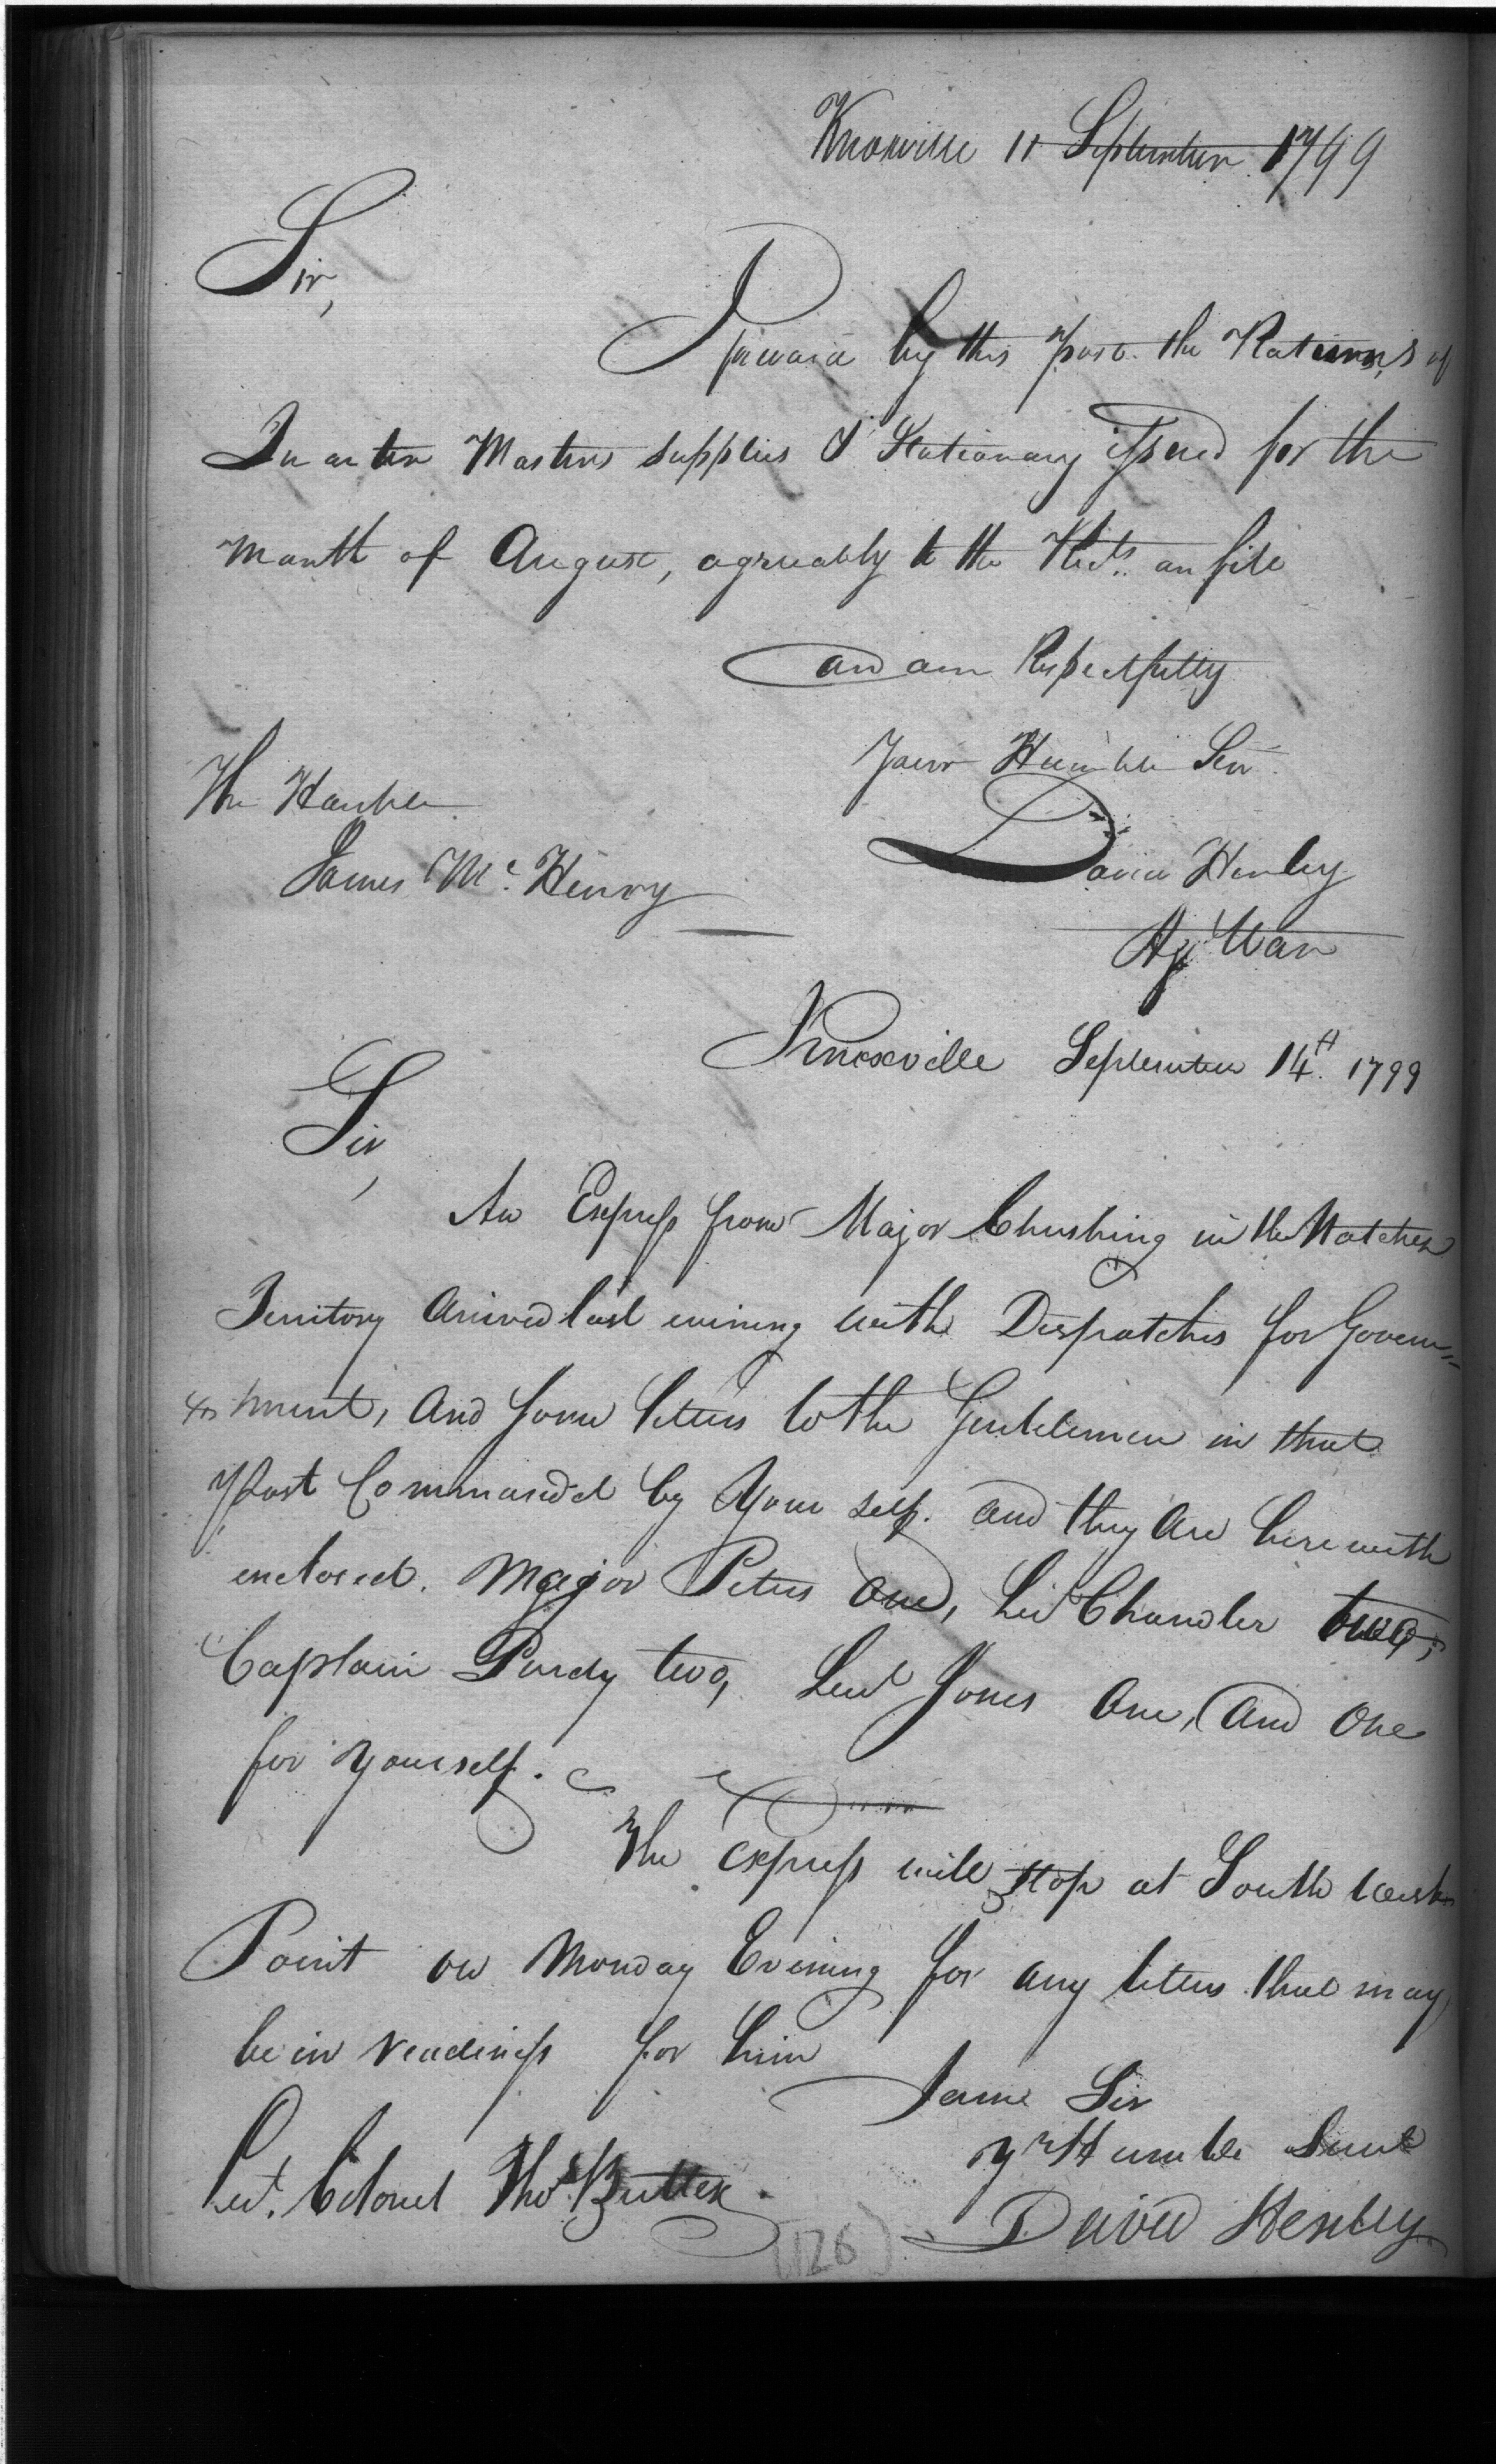 Knoxville 11 September 1799
Sir,
I forward by this post the Returns of
Quarter Masters supplies & Stationary issued for the
Month of August, agreeably to the on file
and am Respectfully
Your Humble Serv.
The Honble
David Henley
James Mc. Henry
Ag War
Knoxville September 14th. 1799
Sir,
An Express from Major Chushing in the Natchez
Territory arrived last evining with Dispatches for Govern=
ment, and some letters to the Gentlemen in that
Post Command'd by Your self. and they are herewith
enclosed. Major Peters one, Liut Chandler two,
Captain Purdy two, Leut Jones one, and one
for Yourself.
The Express will stop at South West
Point on Monday Evening for any letters that may
be in readiness for him
I am Sir
Yr Humble Servt
Lut. Colonel Thos Butler.
David Henley
(126)